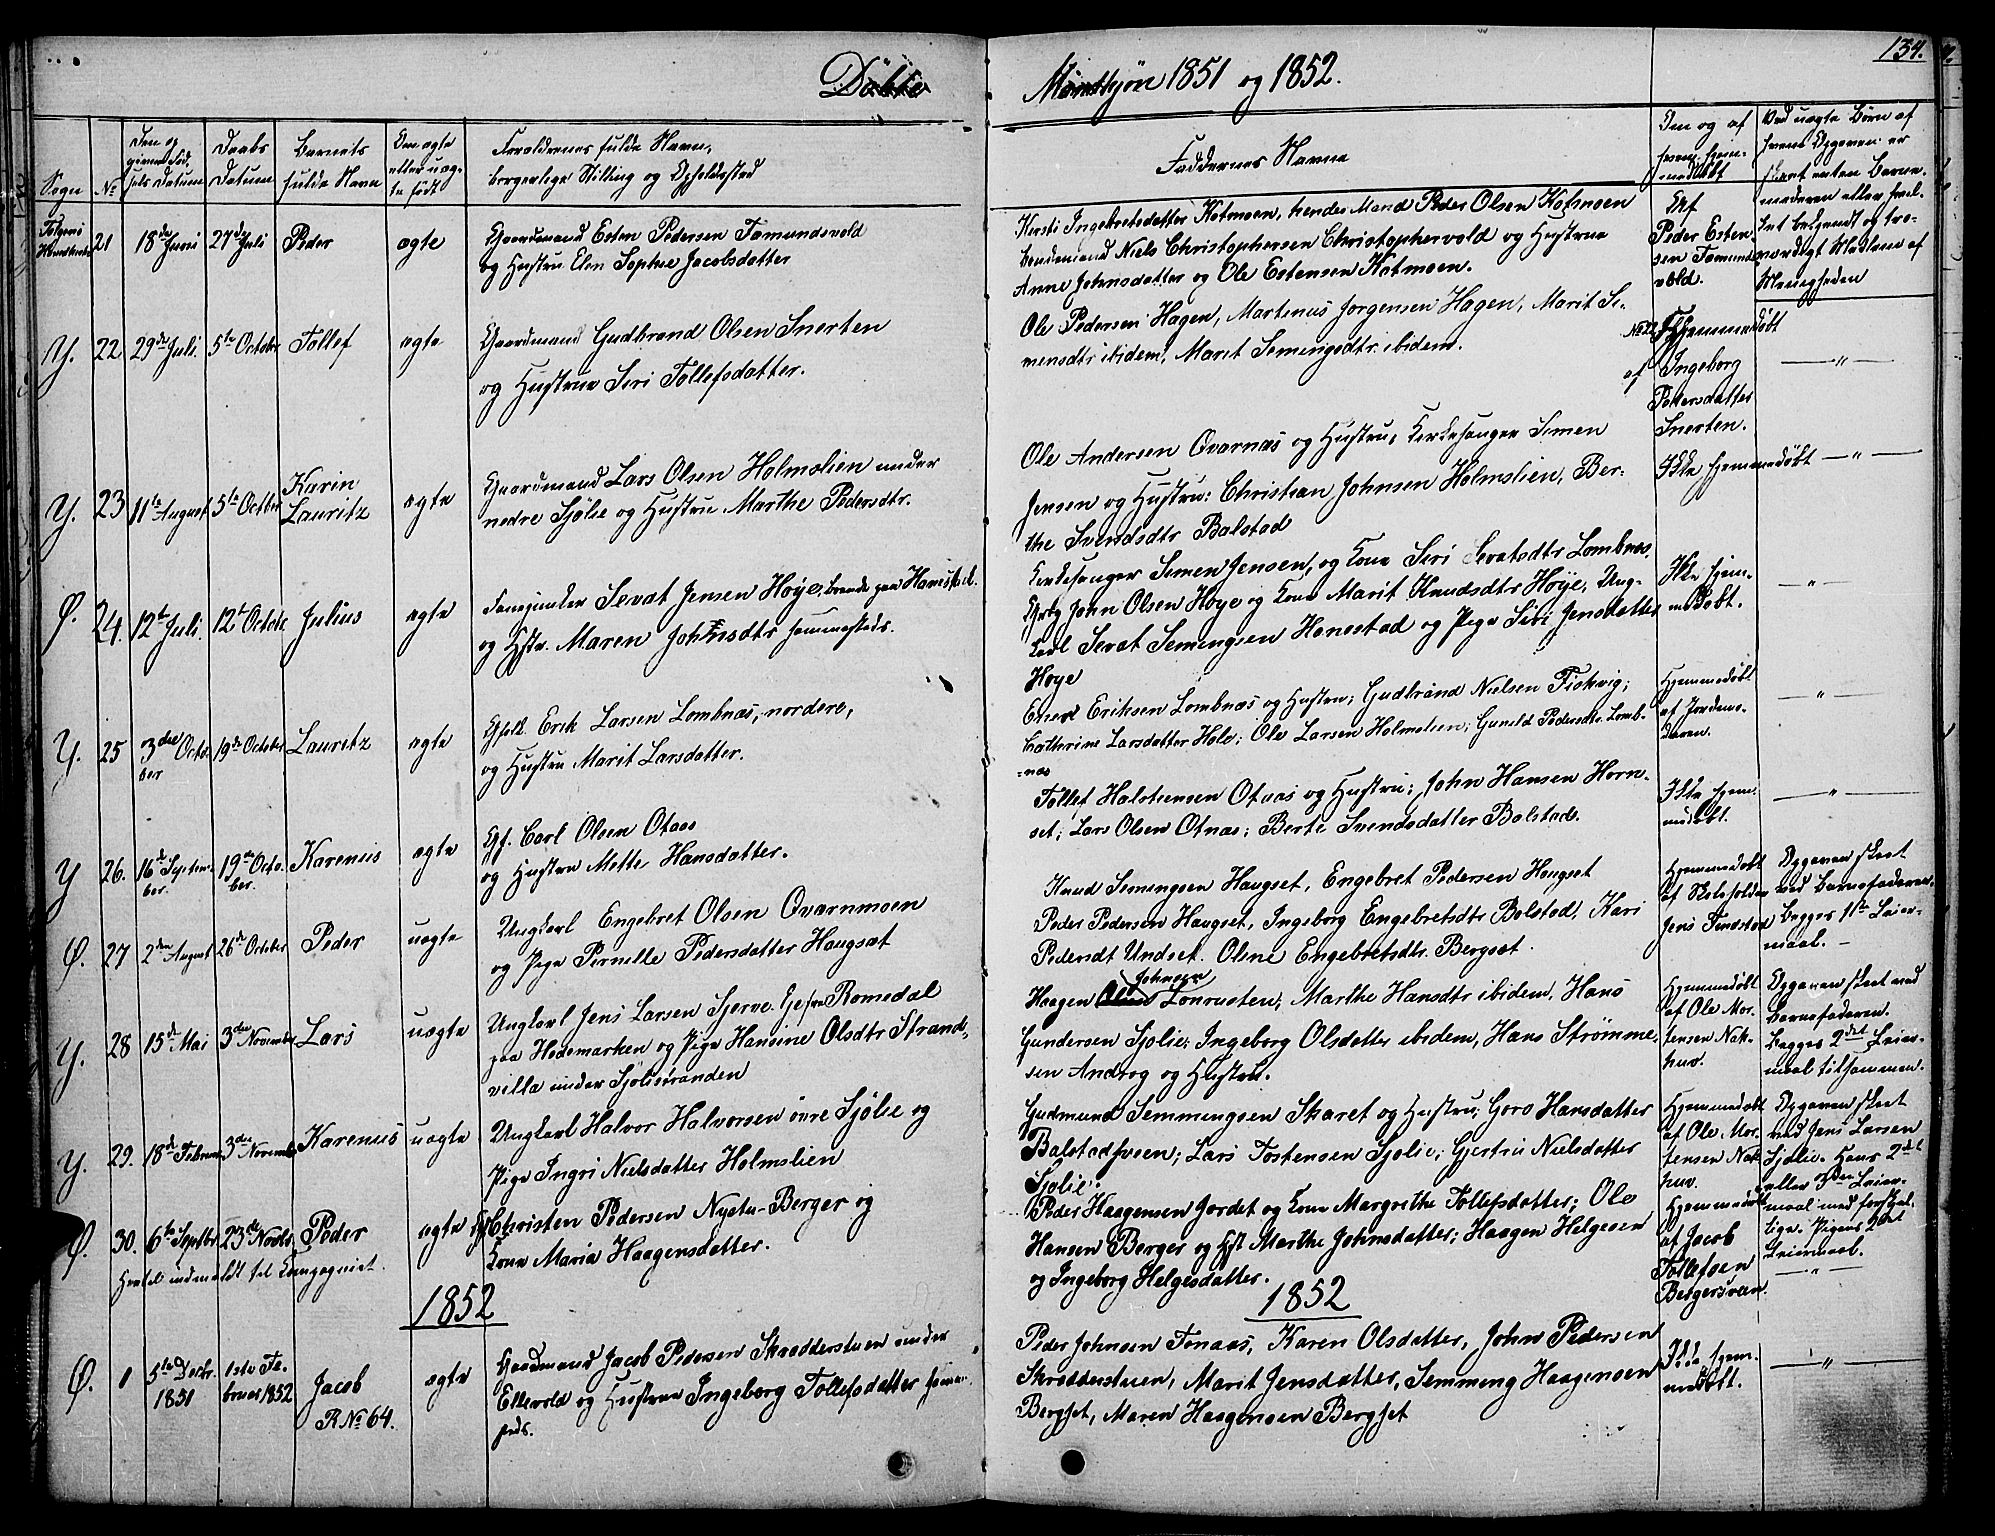 134.
Döbte Mandkjøn 1851 og 1852.
Sogn
No
Den og
givne Fød-
sels Datum
Daabs
Datum
Barnets
fulde Navn
Om ægte
eller uæg-
te født
Forældrenes fulde Navn,
borgerlige Stilling og Opholdssted
Faddernes Navne
Om og af
hvem hjem-
medøbt
Ved uægte Børn af
hvem Opgaven er
skeet enten Barne-
moderen eller frel-
bekjendt og tro-
værdigt Medlem af
Menigheden
21 18de Juni 27de Juli Peder ægte
Gaardmand Esten Pedersen Fæmundsvold
og Hustru Elen Sophie Jacobsdatter
Kersti Ingebretsdatter Kotmoen, hendes Mand Peder Olsen Kotmoen
Bondemand Niels Christophersen Christophervold og Hustrue
Anne Johnsdatter og Ole Estensen Kotmoen.
Af
Peder Esten-
sen Fæmunds-
vold.
Y. 22 29de Juli 5te October Tollef ægte
Gaardmand Gudbrand Olsen Snerten
og Hustrue Siri Tollefsdatter.
Ole Pedersen Hagen, Martinus Jørgensen Hagen, Marit Si-
mensdtr ibidem, Marit Semingsdtr. ibidem.
No 22 Hjemmedøbt
af Ingeborg
Pedersdatter
Snerten.
— " —
Y. 23 11te August 5te Octber Karin
Lauritz
ægte
Gaardmand Lars Olsen Holmslien under
nedre Sjølie og Hustru Marthe Pedersdtr.
Ole Andersen Qvarnæs og Hustru, Kirkesanger Simen
Jensen og Hustru: Christian Johnsen Holmslien, Ber-
the Svendsdtr Bolstad
Ikke hjemmedøbt — " —
Ø. 24. 12te Juli. 12te Octobr Julius ægte
Fanejunker Sevat Jensen Høye, boende paa Hanestad
og Hstr. Maren Johnsdtr sammesteds.
Kirkesanger Simen Jensen, og Kone Siri Sevatsdtr Lombnæs,
Grbg John Olsen Høye og Kone Marit Knudsdtr Høye, Ung-
karl Sevat Semingsen Hanestad og Pige Siri Jensdatter
Høye
Ikke hjem-
medøbt.
— " —
Y. 25 3die Octo-
ber
19de October Lauritz ægte
Gsbr. Erik Larsen Lombnæs, nordere,
og Hustru Marit Larsdatter.
Einar Eriksen Lombnæs og Hustru; Gudbrand Nielsen Fiskvig;
Cathrine Larsdatter Hole; Ole Larsen Holmslien; Gunild Pedersdtr. Lomb-
næs
Hjemmedøbt
af Jordemo-
deren.
— " —
Y 26. 16de Septem-
ber.
19de Octo-
ber.
Karenus ægte
Gf. Carl Olsen Otnæs
og Hustru Mette Hansdatter.
Tollef Halstensen Otnæs og Hustru; John Hansen Horn-
set; Lars Olsen Otnæs; Berte Svendsdatter Bolstad.
Ikke hjem-
medøbt.
— " —
Ø. 27 2den August 26de October Peder uægte
Ungkarl Engebret Olsen Qvernmoen
og Pige Pernille Pedersdatter Haugsæt
Knud Semingsen Haugset, Engebret Pedersen Haugset
Peder Pedersen Haugset, Ingeborg Engebretsdtr Bolstad, Kari
Pedersdt Undset. Oline Engebretsdtr. Bergsæt.
Hjemmedøbt
af Skoleholder
Jens Finstad
Opgaven skeet
ved Barnefaderen.
Begges 11te Leier-
maal. —
Y. 28 15de Mai 3die Novembr Lars uægte
Ungkarl Jens Larsen Sjerve. fra Romedal
paa Hedemarken og Pige Hansine Olsdtr Strand-
villa under Sjølistranden
Haagen Olsen Johnsen Lonrusten; Marthe Hansdtr ibidem, Hans
Gundersen Sjolie; Ingeborg Olsdatter ibidem, Hans Strømme-
sen Androg og Hustru.
Hjemmedøbt
af Ole Mor-
tensen Nak-
hus.
Opgaven skeet ved
Barnefaderen.
Begges 2det Leier-
maal tilsammen.
Y. 29. 18de Februar 3die Novembr Karenus uægte
Ungkarl Halvor Halvorsen øvre Sjølie og
Pige Ingri Nielsdatter Holmslien
Gudmund Semmingsen Skaret og Hustru; Goro Hansdatter
Balstadsveen; Lars Tostensen Sjolie; Gjertru Nielsdatter
Sjolie.
Hjemmedøbt
af Ole Mor-
tensen Nak-
hus.
Opgaven skeet
ved Jens Larsen
Sjølie. Hans 2det
eller 3die Leier-
maal med forskjel-
lige. Pigens 2det
Leiermaal.
Ø. 30. 6te Septbr 23de Novbr Peder ægte
Christen Pedersen Nystu-Berger og
Kone Maria Haagensdatter.
indmeldt til Compagniet.
Peder Haagensen Jordet og Kone Margrethe Tollefsdatter; Ole
Hansen Berger og Hst Marthe Johnsdatter; Haagen Helgesen
og Ingeborg Helgesdatter.
Hjemmedøbt
af Jacob
Tollefsen
Bergersveen.
— " —
1852 1852
Ø. 1 5te Decbr.
1851
1ste Fe-
bruar 1852
Jacob
R No 64.
ægte
Gaardmand Jacob Pedersen Skrædderstuen under
Ellevold og Hustrue Ingeborg Tollefsdatter samme-
steds.
Peder Johnsen Tonaas, Karen Olsdatter, John Pedersen
Skrædderstuen, Marit Jensdatter, Semming Haagensen
Bergset, Maren Haagensen Bergset
Ikke hjem-
medøbt.
— " —